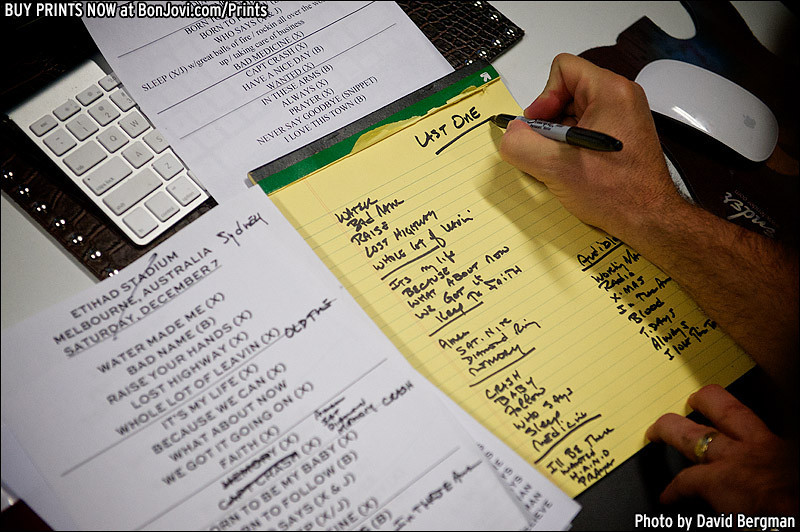 BUY PRINTS NOW at BonJovi.com/Prints
BORN TO
WHO SAYS (X & J)
SLEEP (X/J) w/great balls of fire / rockin all over the
up / taking care of business
BAD MEDICINE (X)
CAPT CRASH (X)
HAVE A NICE DAY (B)
WANTED (X)
IN THESE ARMS (B)
ALWAYS (X)
PRAYER (X)
NEVER SAY GOODBYE (SNIPPET)
I LOVE THIS TOWN (B)
LAST ONE
WATER
BAD NAME
RAISE
LOST HIGHWAY
WHOLE LOT of LEAVIN
ITS my life
BECAUSE
WHAT ABOUT NOW
WE GOT IT
KEEP THE FAITH
Amen
SAT. NITE
Diamond Ring
memory
CRASH
BABY
Follow
WHO SAYS
Sleep
medicine
I'll BE There
WANTED
H.A.N.D
PRAYER
Audible
Working
Radio
X-MAS
In The Arms
Blood
T. DAYS
Always
I Love The To
Sydney
ETIHAD STADIUM
MELBOURNE, AUSTRALIA
SATURDAY, DECEMBER 7
WATER MADE ME (X)
BAD NAME (B)
RAISE YOUR HANDS (X)
LOST HIGHWAY (X)
WHOLE LOT OF LEAVIN (X)
IT'S MY LIFE (X)
BECAUSE WE CAN (X)
WHAT ABOUT NOW
WE GOT IT GOING ON (X)
FAITH (X)
MEMORY (X)
CAPT CRASH (X)
CRASH
BORN TO BE MY BABY (X)
BORN TO FOLLOW (B)
SAYS (X & J)
(B/X/J)
INE (X)
Photo by David Bergman